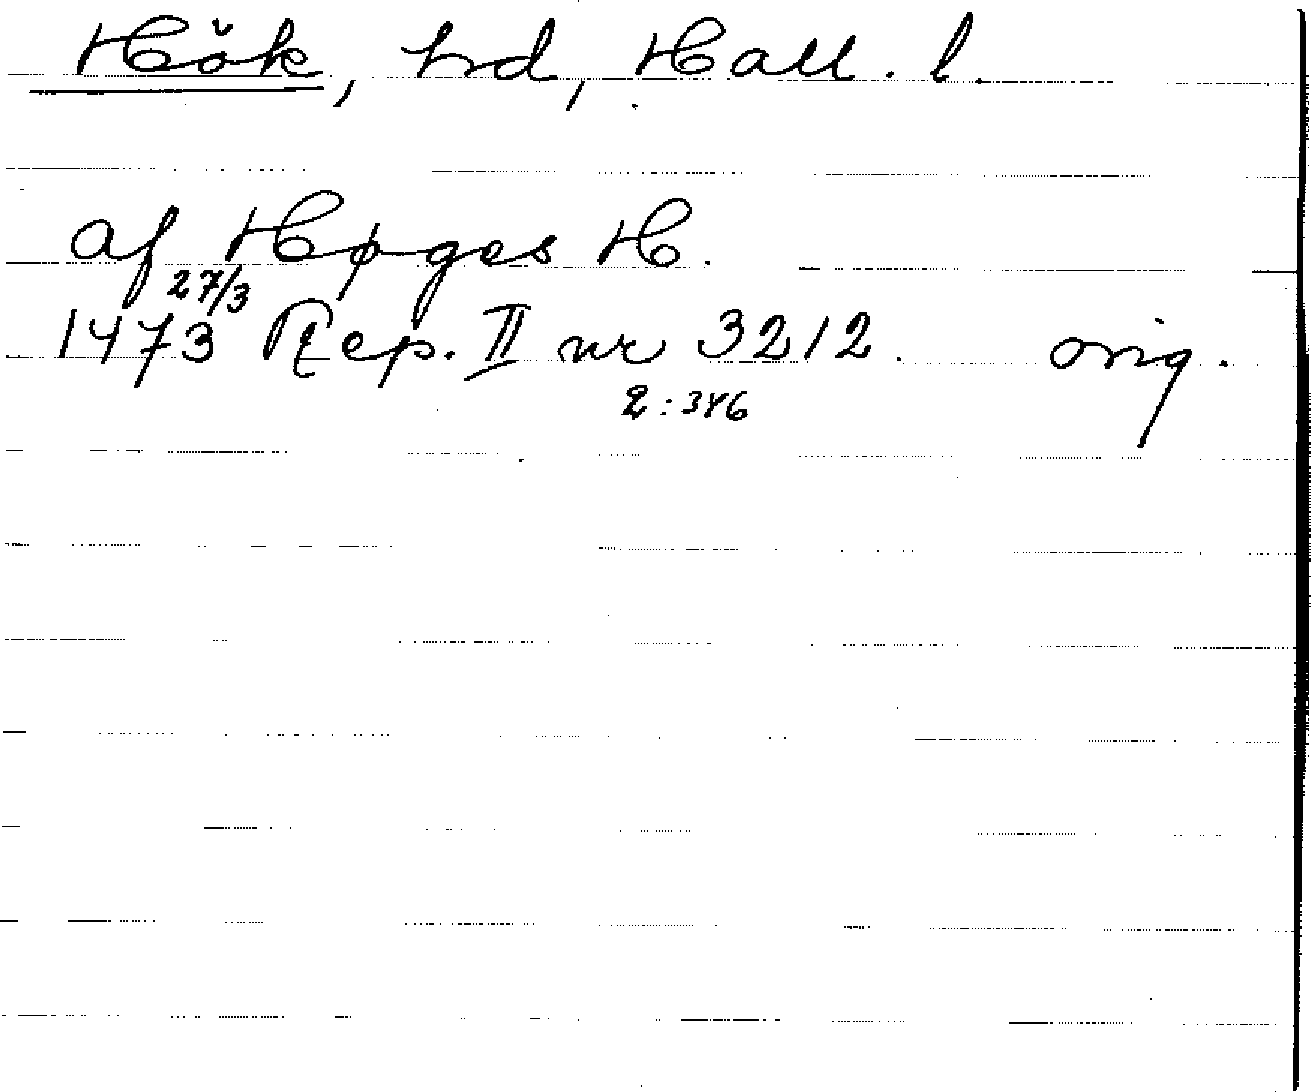 Hök, hd, Hall. l.
af Høges H.
27/3
1473 Rep. II nr 3212. orig.
2:346